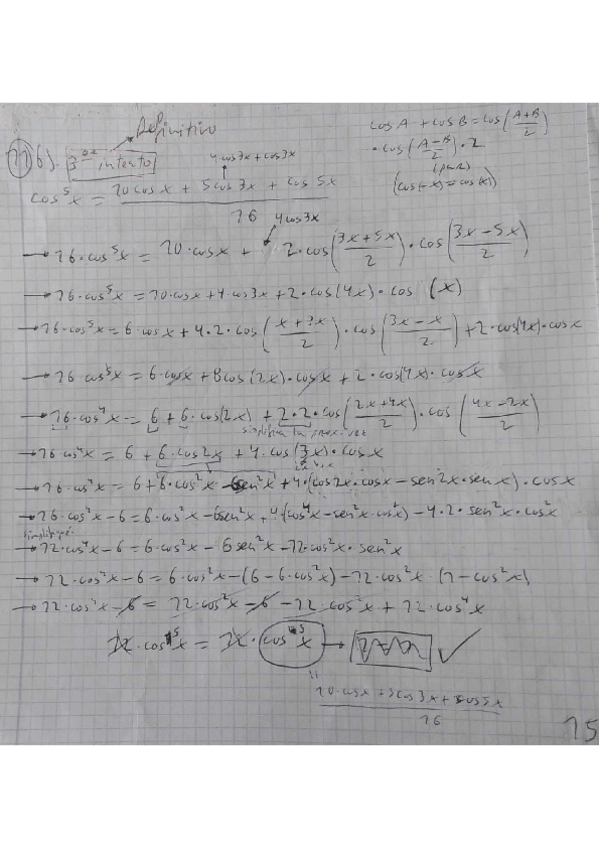 Definitivo
cos A + cos B = cos(A+B/2)
· cos(A-B/2) · 2
(par)
(cos(-x) = cos(x))
11 b). 3er intento
4 cos 3x + cos 3x
cos⁵x = 10 cos x + 5 cos 3x + cos 5x / 16
4 cos 3x
→ 16 · cos⁵x = 10 · cos x + 2 · cos(3x+5x/2) · cos(3x-5x/2)
→ 16 · cos⁵x = 10 · cos x + 4 cos 3x + 2 · cos(4x) · cos (x)
→ 16 · cos⁵x = 6 · cos x + 4 · 2 · cos(x+3x/2) · cos(3x-x/2) + 2 · cos(4x) · cos x
→ 16 · cos⁵x = 6 · cos x + 8 cos(2x) · cos x + 2 · cos(4x) · cos x
→ 16 · cos⁴x = 6 + 6 · cos(2x) + 2 · 2 · cos(2x+4x/2) · cos(4x-2x/2)
→ 16 cos⁴x = 6 + 6 · cos 2x + 4 · cos(3x) · cos x
→ 16 · cos⁴x = 6 + 6 · cos²x - 6 sen²x + 4 · (cos 2x · cos x - sen 2x · sen x) · cos x
→ 16 · cos⁴x - 6 = 6 · cos²x - 6 sen²x + 4(cos⁴x - sen²x · cos²x) - 4 · 2 · sen²x · cos²x
simplifiqué
→ 12 · cos⁴x - 6 = 6 · cos²x - 6 sen²x - 12 · cos²x · sen²x
→ 12 · cos⁴x - 6 = 6 · cos²x - (6 - 6 · cos²x) - 12 · cos²x · (1 - cos²x)
→ 12 · cos⁴x - 6 = 12 · cos²x - 6 - 12 · cos²x + 12 · cos⁴x
12 · cos⁵x = 12 · cos⁵x → ✓
11
10 · cos x + 5 cos 3x + cos 5x / 16
15